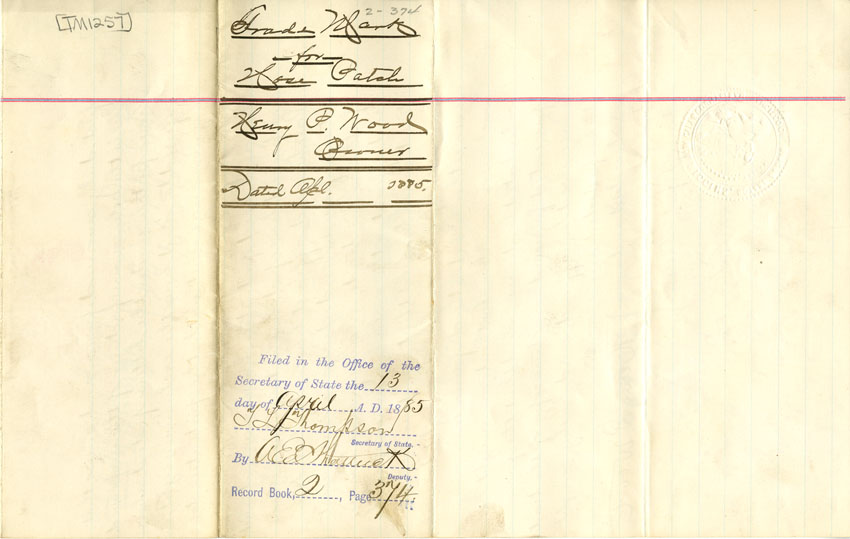 [TM1257]
2-374
Trade Mark
-for-
Hose Patch
Henry P. Wood
Owner
Dated Apl. 1885.
Filed in the Office of the
Secretary of State the 13
day of April A. D. 1885
T L Thompson
Secretary of State.
By
Deputy.
Record Book, 2, Page 374